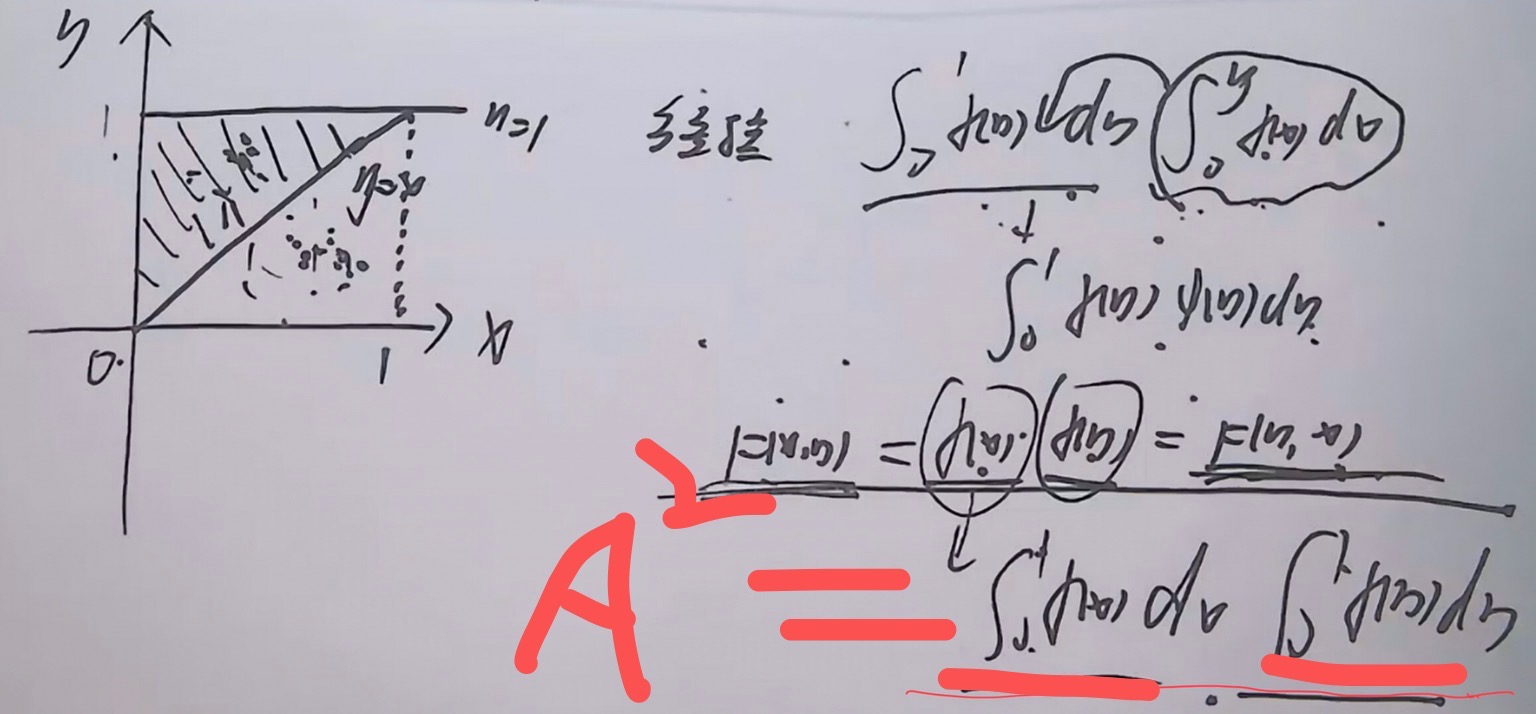 y
1
y=1
y=x
0
1
x
经验 ∫₀¹ f(y) dy ∫₀^y f(x) dx
∫₀¹ f(y) φ(y) dy
F(x,y) = f(x) f(y) = F(y,x)
A² = ∫₀¹ f(x) dx ∫₀¹ f(y) dy